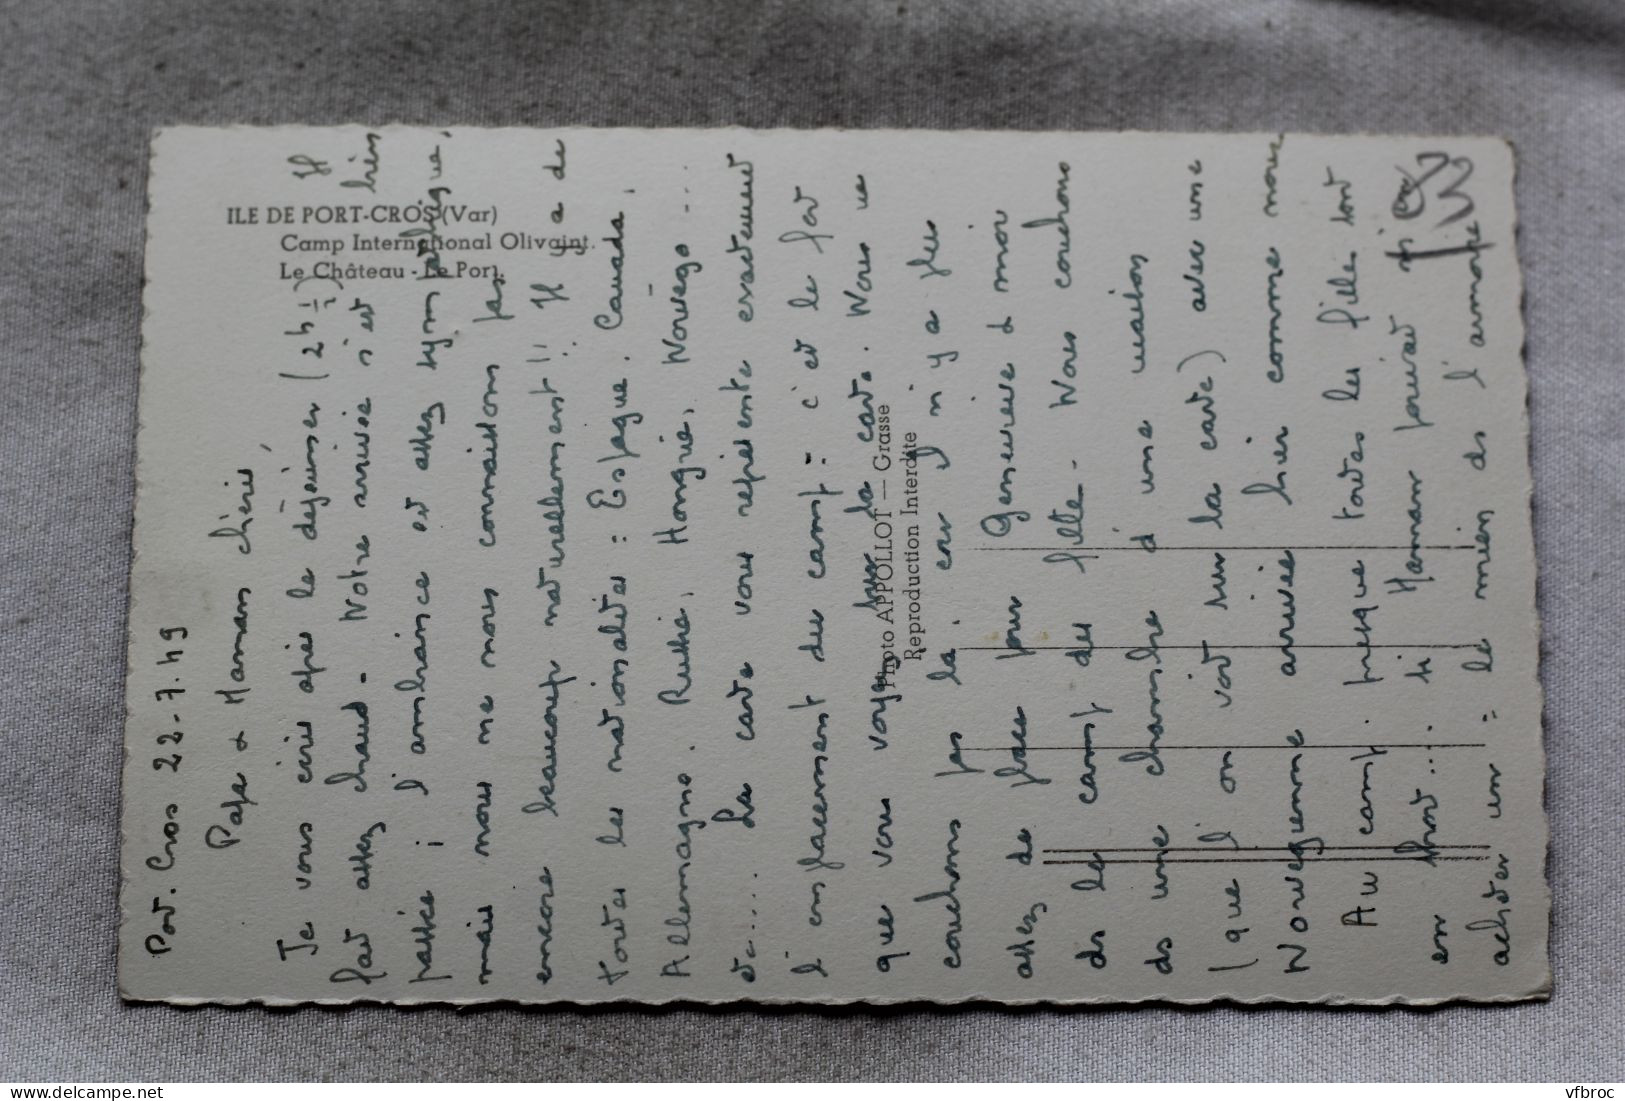 ILE DE PORT-CROS (Var)
Camp International Olivaint.
Le Château - Le Port.
Photo APPOLLOT — Grasse
Reproduction Interdite
Port. Cros 22-7.49
Papa & Maman chéris,
Je vous écris après le déjeuner (2h 1/2) Il
fait assez chaud. Notre arrivée s'est bien
passée ; l'ambiance est assez sympathique,
mais nous ne nous connaissons pas
encore beaucoup naturellement !! Il y a de
toutes les nationalités : Espagne. Canada.
Allemagne. Russie, Hongrie, Norvège....
etc.... La carte vous représente exactement
l'emplacement du camp : c'est le fort
que vous voyez sur la carte. Nous ne
couchons pas là, car il n'y a plus
assez de place pour Geneviève & moi
ds le camp des filles - Nous couchons
ds une chambre d'une maison
(que l'on voit sur la carte) avec une
Norvégienne arrivée hier comme nous
Au camp. presque toutes les filles sont
en short.... si Maman pouvait m'en
acheter un : le mien ds l'armoire
13
vfbroc